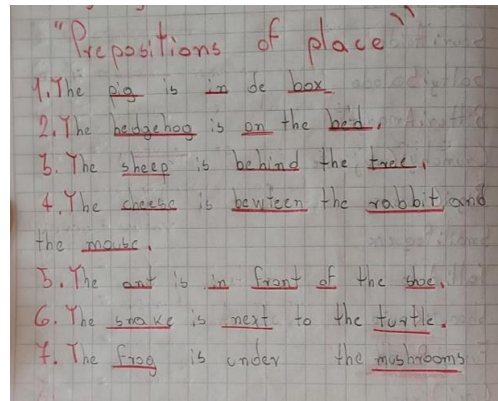 "Prepositions of place"
1. The pig is in de box
2. The hedgehog is on the bed.
3. The sheep is behind the tree.
4. The cheese is bewteen the rabbit and
the mouse.
5. The ant is in front of the shoe.
6. The snake is next to the turtle.
7. The frog is under the mushrooms